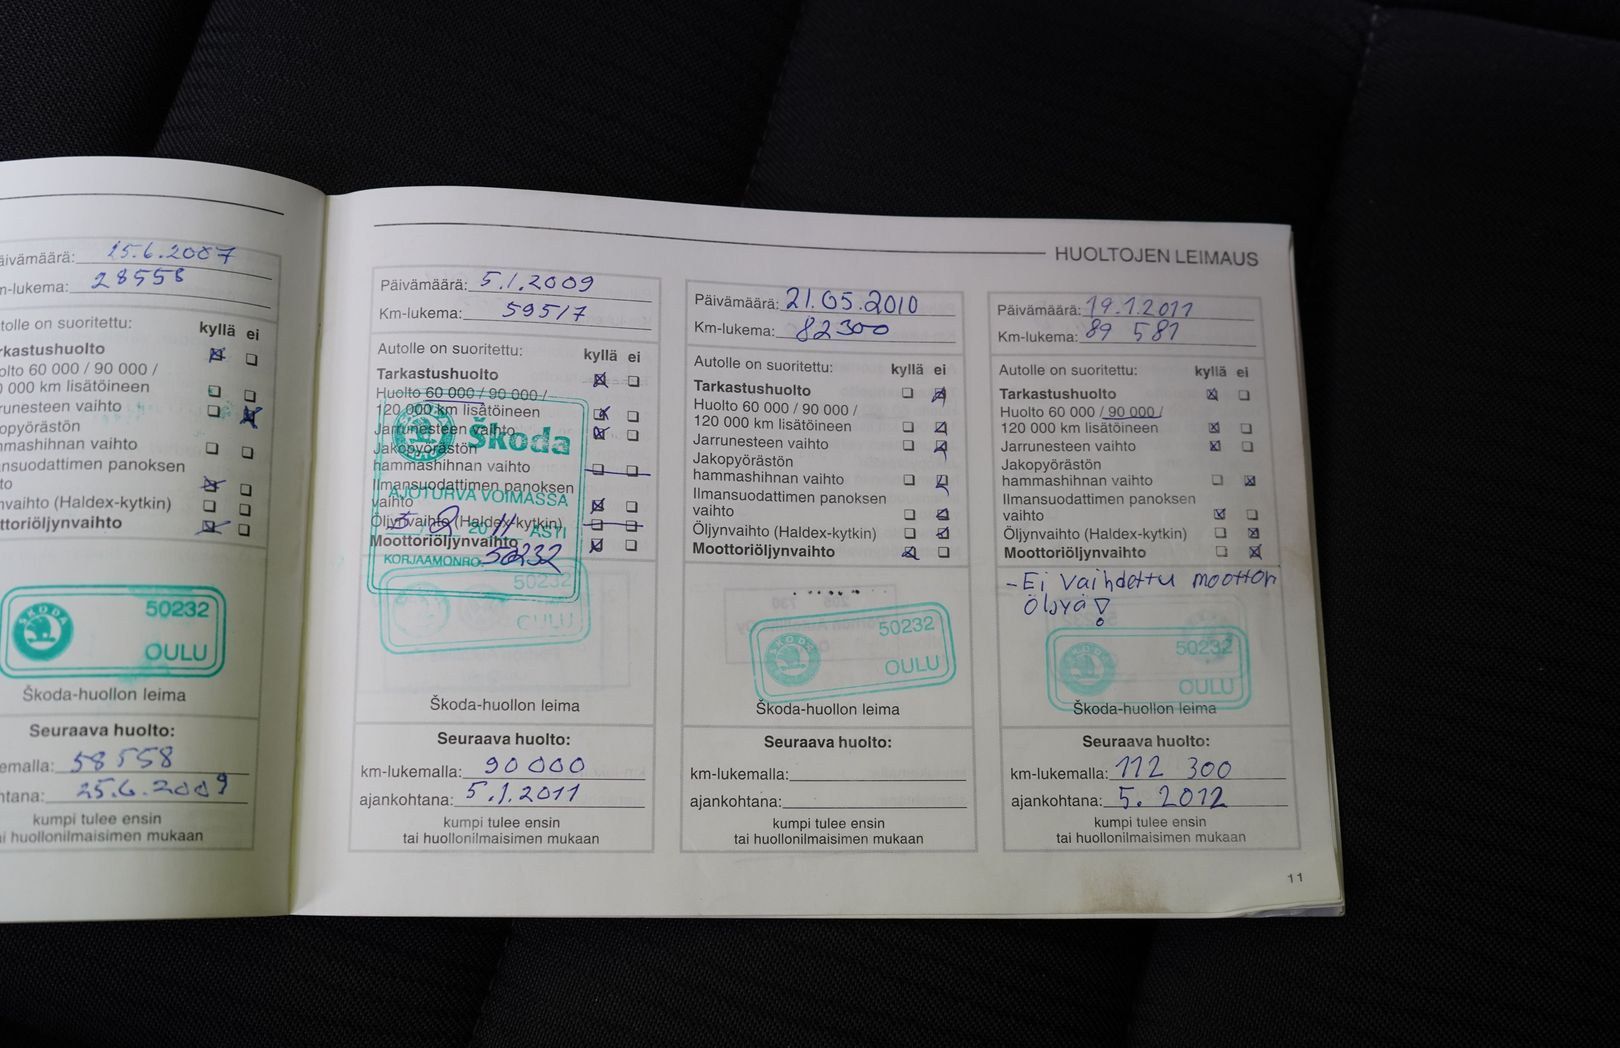 äivämäärä: 25.6.2007
m-lukema: 28558
utolle on suoritettu: kyllä ei
rkastushuolto
olto 60 000 / 90 000 /
0 000 km lisätöineen
rrunesteen vaihto
opyörästön
mmashihnan vaihto
ansuodattimen panoksen
to
nvaihto (Haldex-kytkin)
ttoriöljynvaihto
ŠKODA
50232
OULU
Škoda-huollon leima
Seuraava huolto:
emalla: 58558
htana: 25.6.2009
kumpi tulee ensin
ai huollonilmaisimen mukaan
HUOLTOJEN LEIMAUS
Päivämäärä: 5.1.2009
Km-lukema: 59517
Autolle on suoritettu: kyllä ei
Tarkastushuolto
Huolto 60 000 / 90 000 /
120 000 km lisätöineen
Jarrunesteen vaihto
Jakopyörästön
hammashihnan vaihto
Ilmansuodattimen panoksen
vaihto
Öljynvaihto (Haldex-kytkin)
Moottoriöljynvaihto
Škoda
AJOTURVA VOIMASSA
2011 ASTI
KORJAAMONRO. 50232
50232
OULU
Škoda-huollon leima
Seuraava huolto:
km-lukemalla: 90 000
ajankohtana: 5.1.2011
kumpi tulee ensin
tai huollonilmaisimen mukaan
Päivämäärä: 21.05.2010
Km-lukema: 82300
Autolle on suoritettu: kyllä ei
Tarkastushuolto
Huolto 60 000 / 90 000 /
120 000 km lisätöineen
Jarrunesteen vaihto
Jakopyörästön
hammashihnan vaihto
Ilmansuodattimen panoksen
vaihto
Öljynvaihto (Haldex-kytkin)
Moottoriöljynvaihto
ŠKODA
50232
OULU
Škoda-huollon leima
Seuraava huolto:
km-lukemalla:
ajankohtana:
kumpi tulee ensin
tai huollonilmaisimen mukaan
Päivämäärä: 19.1.2011
Km-lukema: 89 581
Autolle on suoritettu: kyllä ei
Tarkastushuolto
Huolto 60 000 / 90 000 /
120 000 km lisätöineen
Jarrunesteen vaihto
Jakopyörästön
hammashihnan vaihto
Ilmansuodattimen panoksen
vaihto
Öljynvaihto (Haldex-kytkin)
Moottoriöljynvaihto
- Ei vaihdettu moottori
öljyä!
ŠKODA
50232
OULU
Škoda-huollon leima
Seuraava huolto:
km-lukemalla: 112 300
ajankohtana: 5. 2012
kumpi tulee ensin
tai huollonilmaisimen mukaan
11